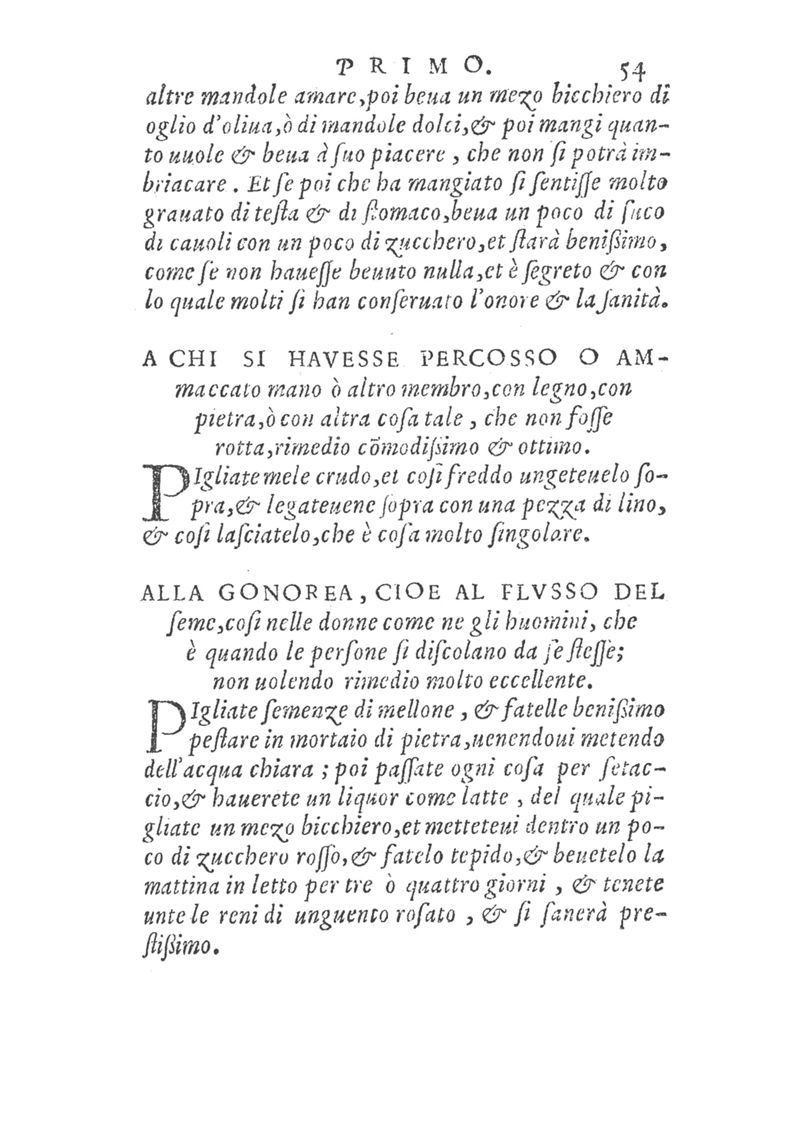 PRIMO. 54
altre mandole amare,poi beua un mezo bicchiero di
oglio d'oliua,ò di mandole dolci,& poi mangi quan-
to uuole & beua à ſuo piacere , che non ſi potrà im-
briacare . Et ſe poi che ha mangiato ſi ſentiſſe molto
grauato di teſta & di ſtomaco,beua un poco di ſuco
di cauoli con un poco di zucchero,et ſtarà benißimo,
come ſe non haueſſe beuuto nulla,et è ſegreto & con
lo quale molti ſi han conſeruato l'onore & la ſanità.
A CHI SI HAVESSE PERCOSSO O AM-
maccato mano ò altro membro,con legno,con
pietra,ò con altra coſa tale , che non foſſe
rotta,rimedio cõmodißimo & ottimo.
PIgliate mele crudo,et coſi freddo ungeteuelo ſo-
pra,& legateuene ſopra con una pezza di lino,
& coſi laſciatelo,che è coſa molto ſingolare.
ALLA GONOREA, CIOE AL FLVSSO DEL
ſeme,coſi nelle donne come ne gli huomini, che
è quando le perſone ſi diſcolano da ſe ſteſſe;
non uolendo rimedio molto eccellente.
PIgliate ſemenze di mellone , & fatelle benißimo
peſtare in mortaio di pietra,uenendoui metendo
dell'acqua chiara ; poi paſſate ogni coſa per ſetac-
cio,& hauerete un liquor come latte , del quale pi-
gliate un mezo bicchiero,et metteteui dentro un po-
co di zucchero roſſo,& fatelo tepido,& beuetelo la
mattina in letto per tre ò quattro giorni , & tenete
unte le reni di unguento roſato , & ſi ſanerà pre-
ſtißimo.